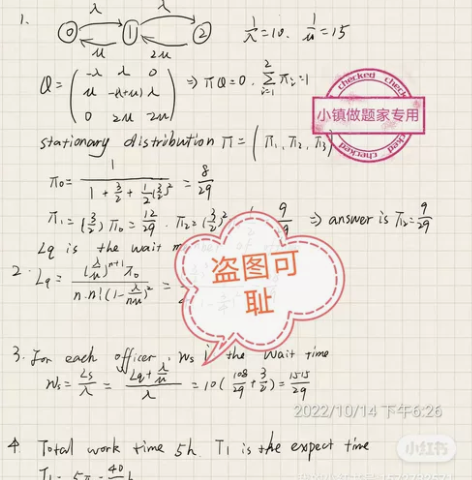 1.
λ λ
0 1 2
μ 2μ
1/λ = 10. 1/μ = 15
Q = ( -λ λ 0
μ -(μ+λ) λ
0 2μ 2μ ) ⇒ πQ = 0. Σ_{i=1}^{2} πi = 1
checked
小镇做题家专用
checked
stationary distribution π = (π1, π2, π3)
π0 = 1 / (1 + 3/2 + 1/2(3/2)²) = 8/29
π1 = (3/2) π0 = 12/29 . π2 = (3/2)² 9/29 ⇒ answer is π2 = 9/29
Lq is the wait
盗图可
耻
2. Lq = (λ/μ)^{n+1} π0 / (n·n!(1 - λ/nμ)²) =
3. For each officer, Ws is the wait time
Ws = Ls/λ = (Lq + λ/μ)/λ = 10(108/29 + 3/2) = 1515/29
2022/10/14 下午6:26
4 Total work time 5h. T1 is the expect time
小红书
T1 = 5π = 40 h